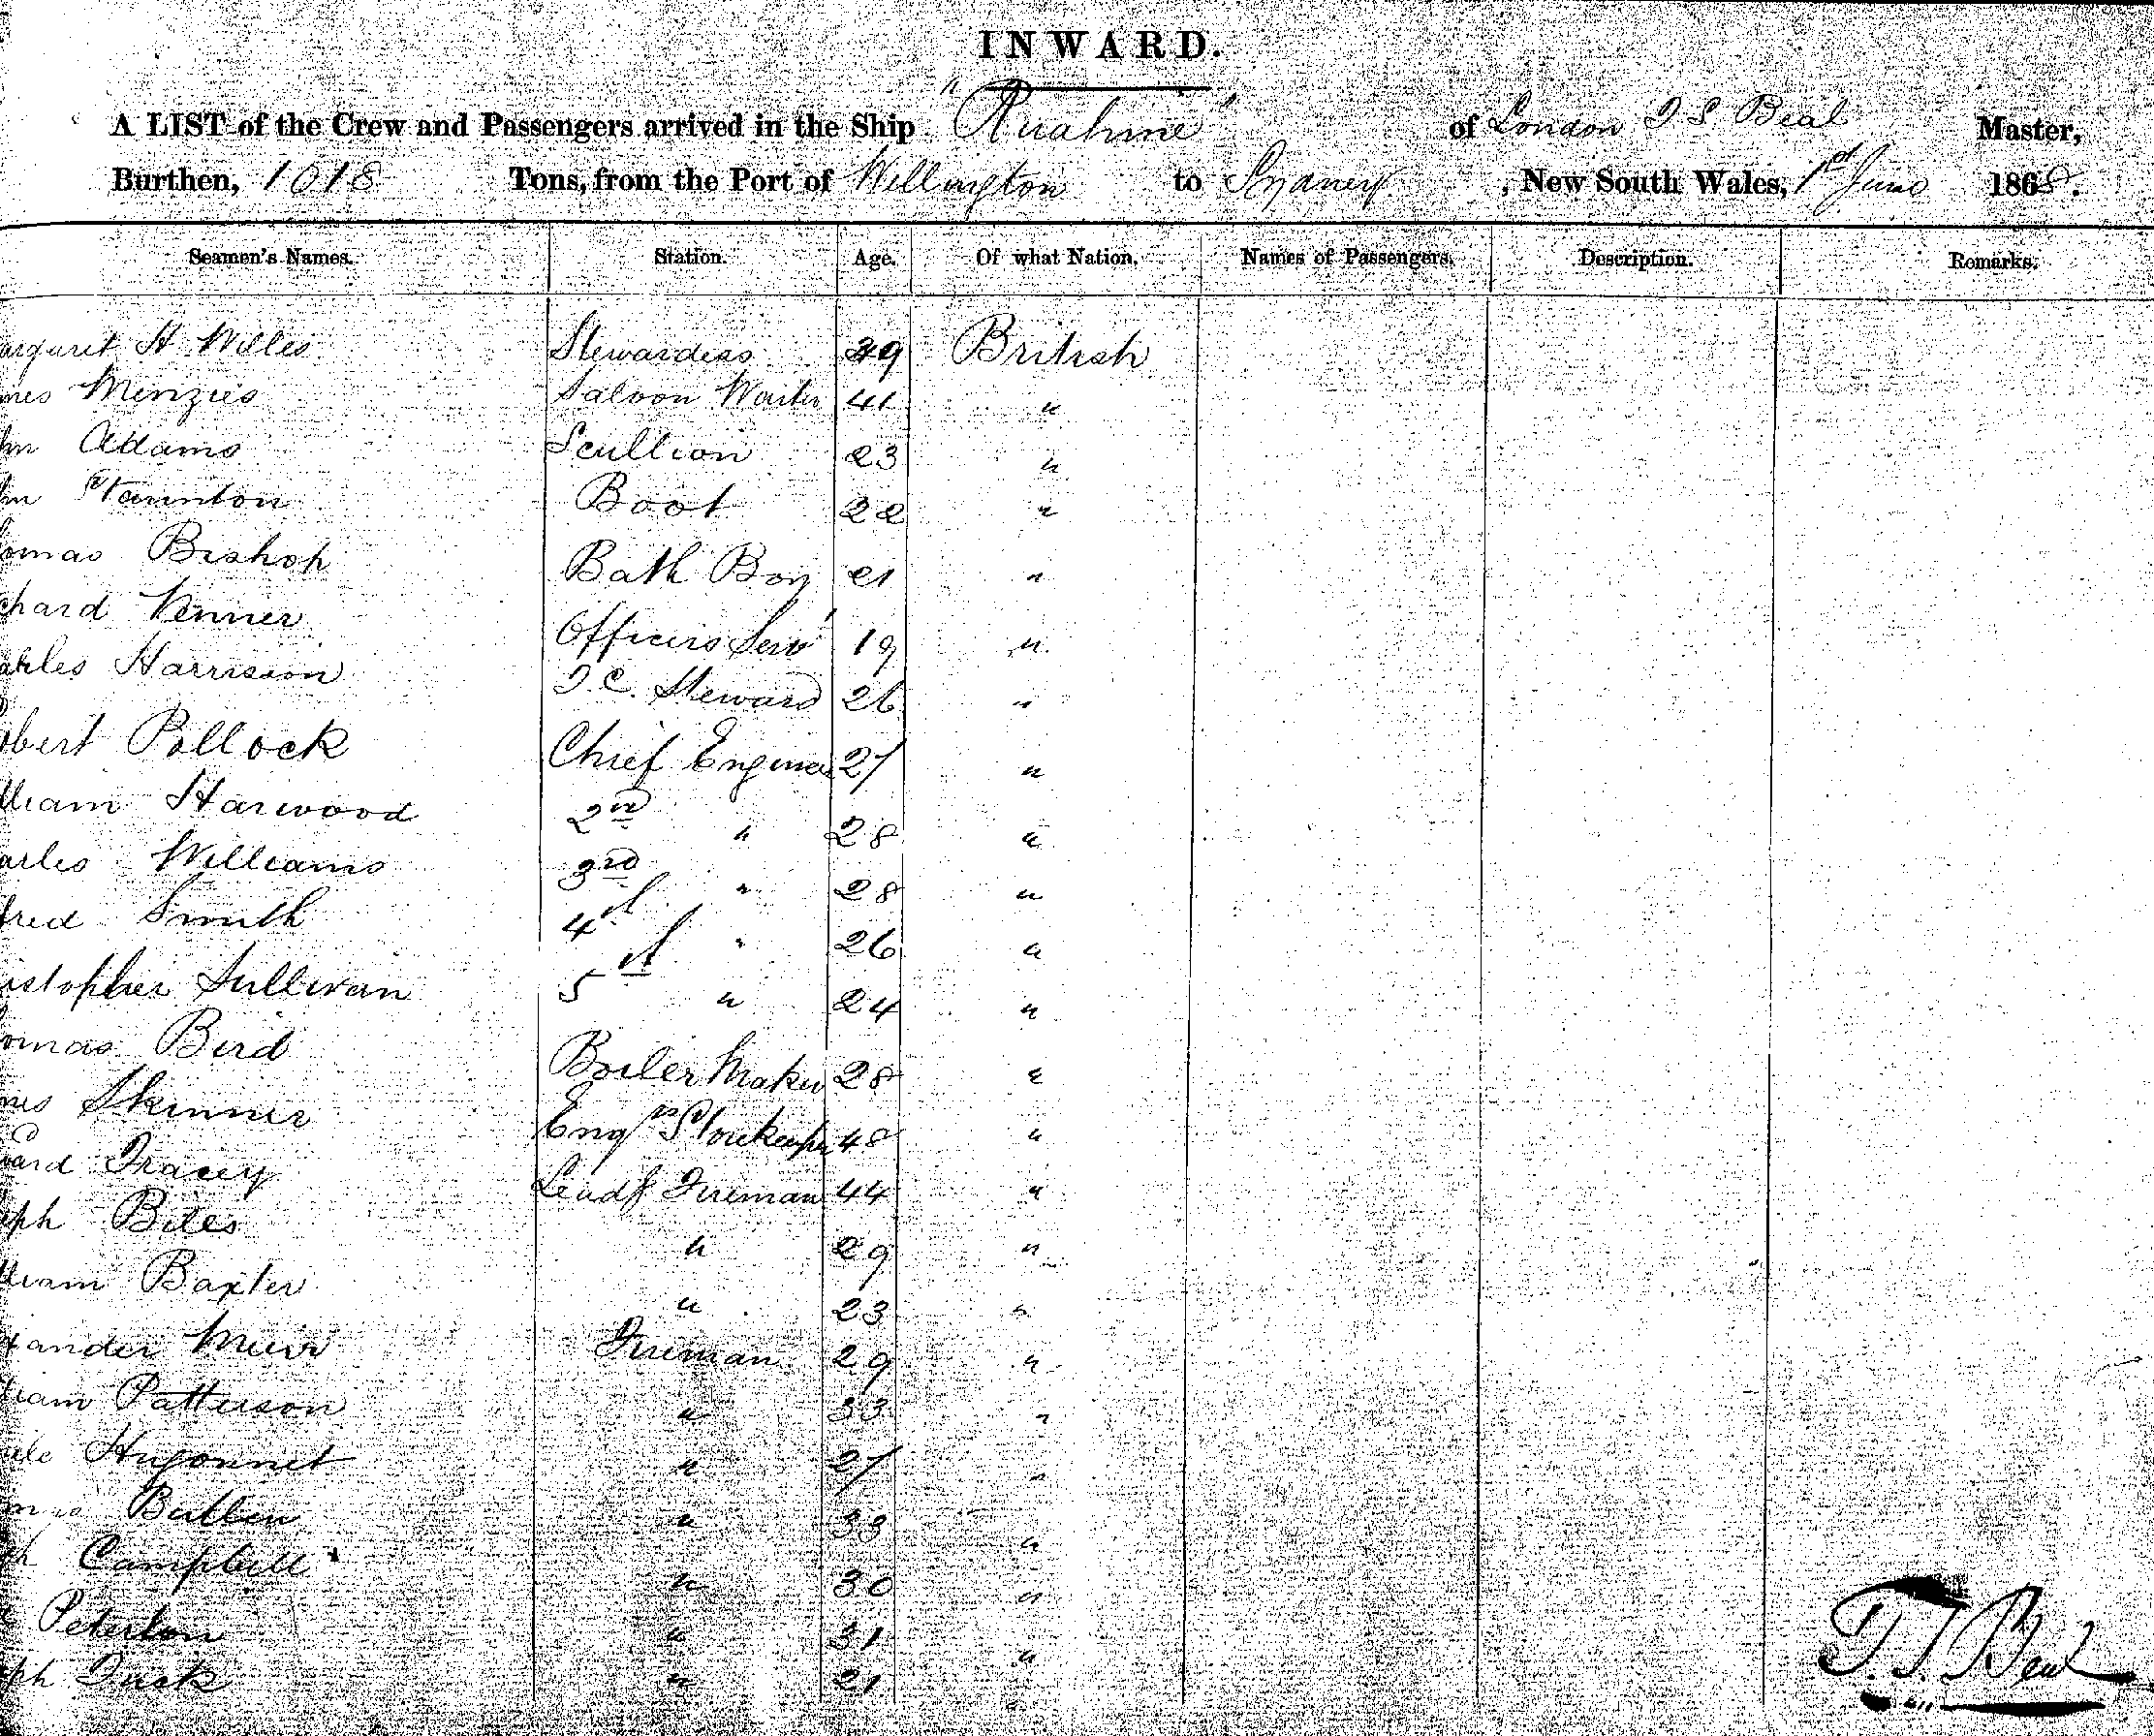 INWARD.
A LIST of the Crew and Passengers arrived in the Ship "Ruahine" of London T S Beal Master,
Burthen, 1018 Tons, from the Port of Wellington to Sydney, New South Wales, 1st June 1868.
Seamen's Names. Station. Age. Of what Nation. Names of Passengers. Description. Remarks.
argaret H Willes Stewardess 39 British
mes Menzies Saloon Waiter 41 "
hn Adams Scullion 23 "
hn Staunton Boot 22 "
omas Bishop Bath Boy 21 "
chard Venner Officers Servt 19 "
arles Harrison 2.C. Steward 26 "
obert Pollock Chief Engineer 27 "
lliam Harwood 2nd " 28 "
arles Williams 3rd " 28 "
fred Smith 4th " 26 "
ristopher Sullivan 5th " 24 "
omas Bird Boiler Maker 28 "
mes Skinner Engrs Storekeeper 48 "
ward Tracey Leadg Fireman 44 "
eph Biles " 29 "
lliam Baxter " 23 "
xander Muir Fireman 29 "
liam Patterson " 33 "
Hugonnet " 27 "
Butler " 33 "
ph Campbell " 30 "
Peterson " 31 "
eph Tusk " 21 "
T. S. Beal